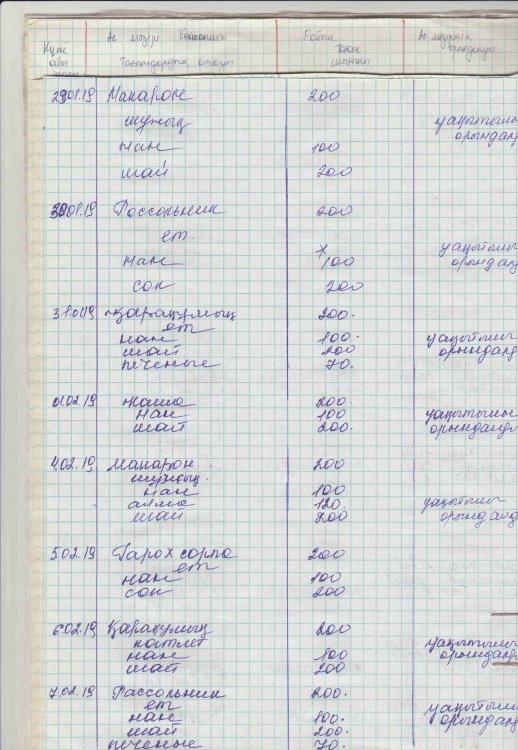 Күні айы жылы Ас мәзірі бойынша Рацион Ас мәзірінің орындалуы
Тағамдардың аталуы
29.01.19 Макарон 200
шұжық уақытылы
нан 100 орындалд
шай 200
30.01.19 Рассольник 200
ет уақытылы
нан 100 орындалд
сок 200
31.01.19 Қарақұмық 200.
ет
нан 100. уақытылы
шай 200 орындалд
печенье 70.
01.02.19 каша 200.
нан 100 уақытылы
шай 200. орындалд
4.02.19 макарон 200
шұжық
нан 100
алма 120. уақытылы
шай 200 орындалд
5.02.19 Горох сорпа 200
ет
нан 100
сок 200
6.02.19 Қарақұмық 200
катлет уақытылы
нан 100 орындалд
шай 200
7.02.19 Рассольник 200.
ет уақытылы
нан 100. орындалд
шай 200.
печенье 70.